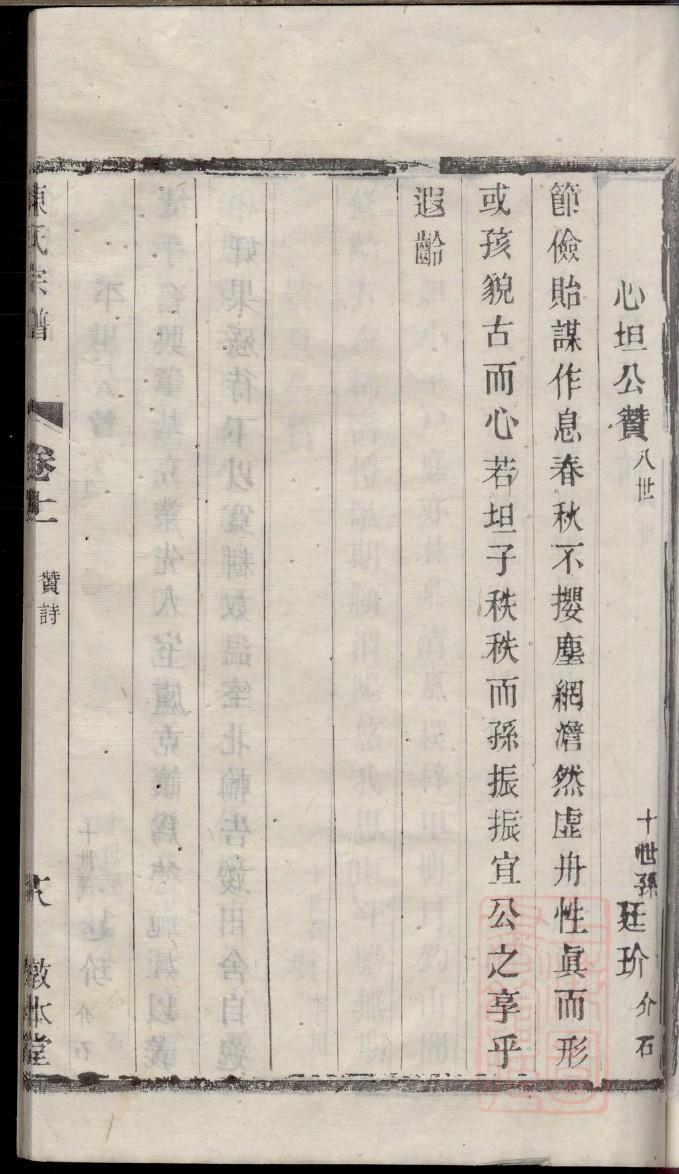 心坦公贊 八世
十世孫 廷玠 介石
節儉貽謀作息春秋不攖塵網澹然虛舟性眞而形
或孩貌古而心若坦子秩秩而孫振振宜公之享乎
遐齡
陳氏宗譜
贊詩
敦本堂